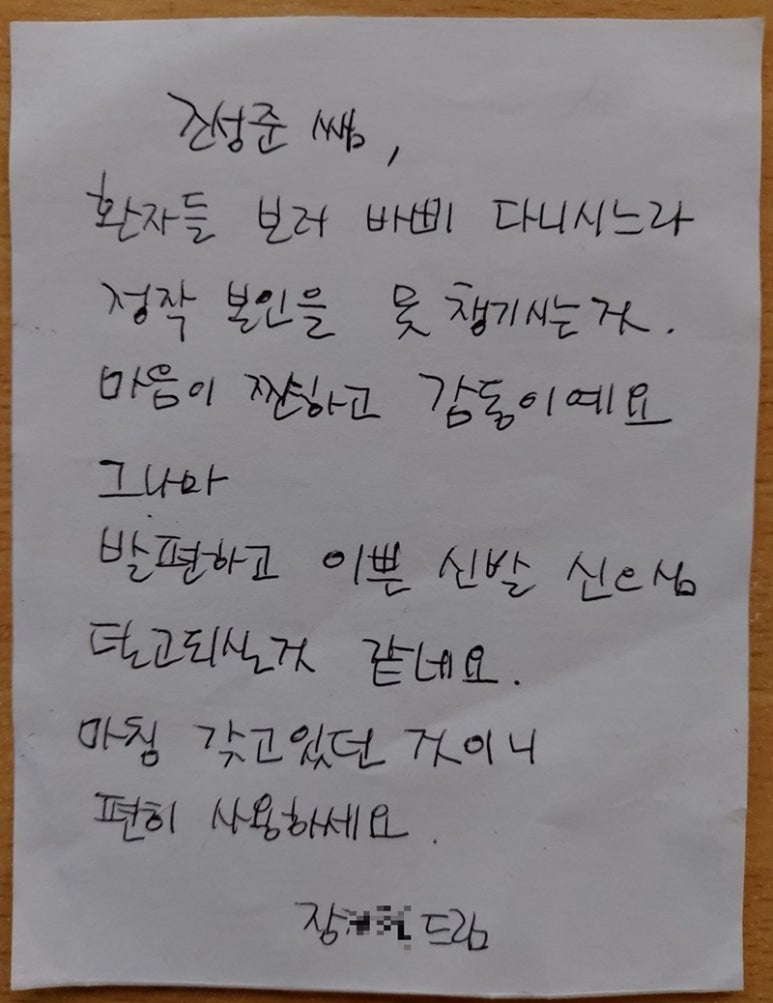 진성준 쌤,
환자들 보러 바삐 다니시느라
정작 본인을 못 챙기시는것.
마음이 짠하고 감동이예요
그나마
발편하고 이쁜 신발 신으심
덜고되실것 같네요.
마침 갖고있던 것이니
편히 사용하세요.
장 드림